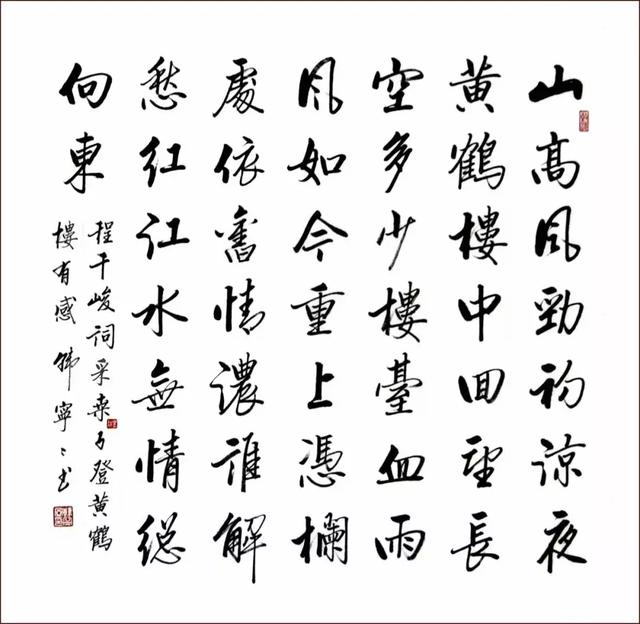 山高风勁初涼夜
黄鶴樓中回望長
空多少樓臺血雨
风如今重上憑欄
處依舊情濃誰解
愁紅江水無情總
向東
程千峻词采桑子登黄鶴
樓有感 韩寧寧书